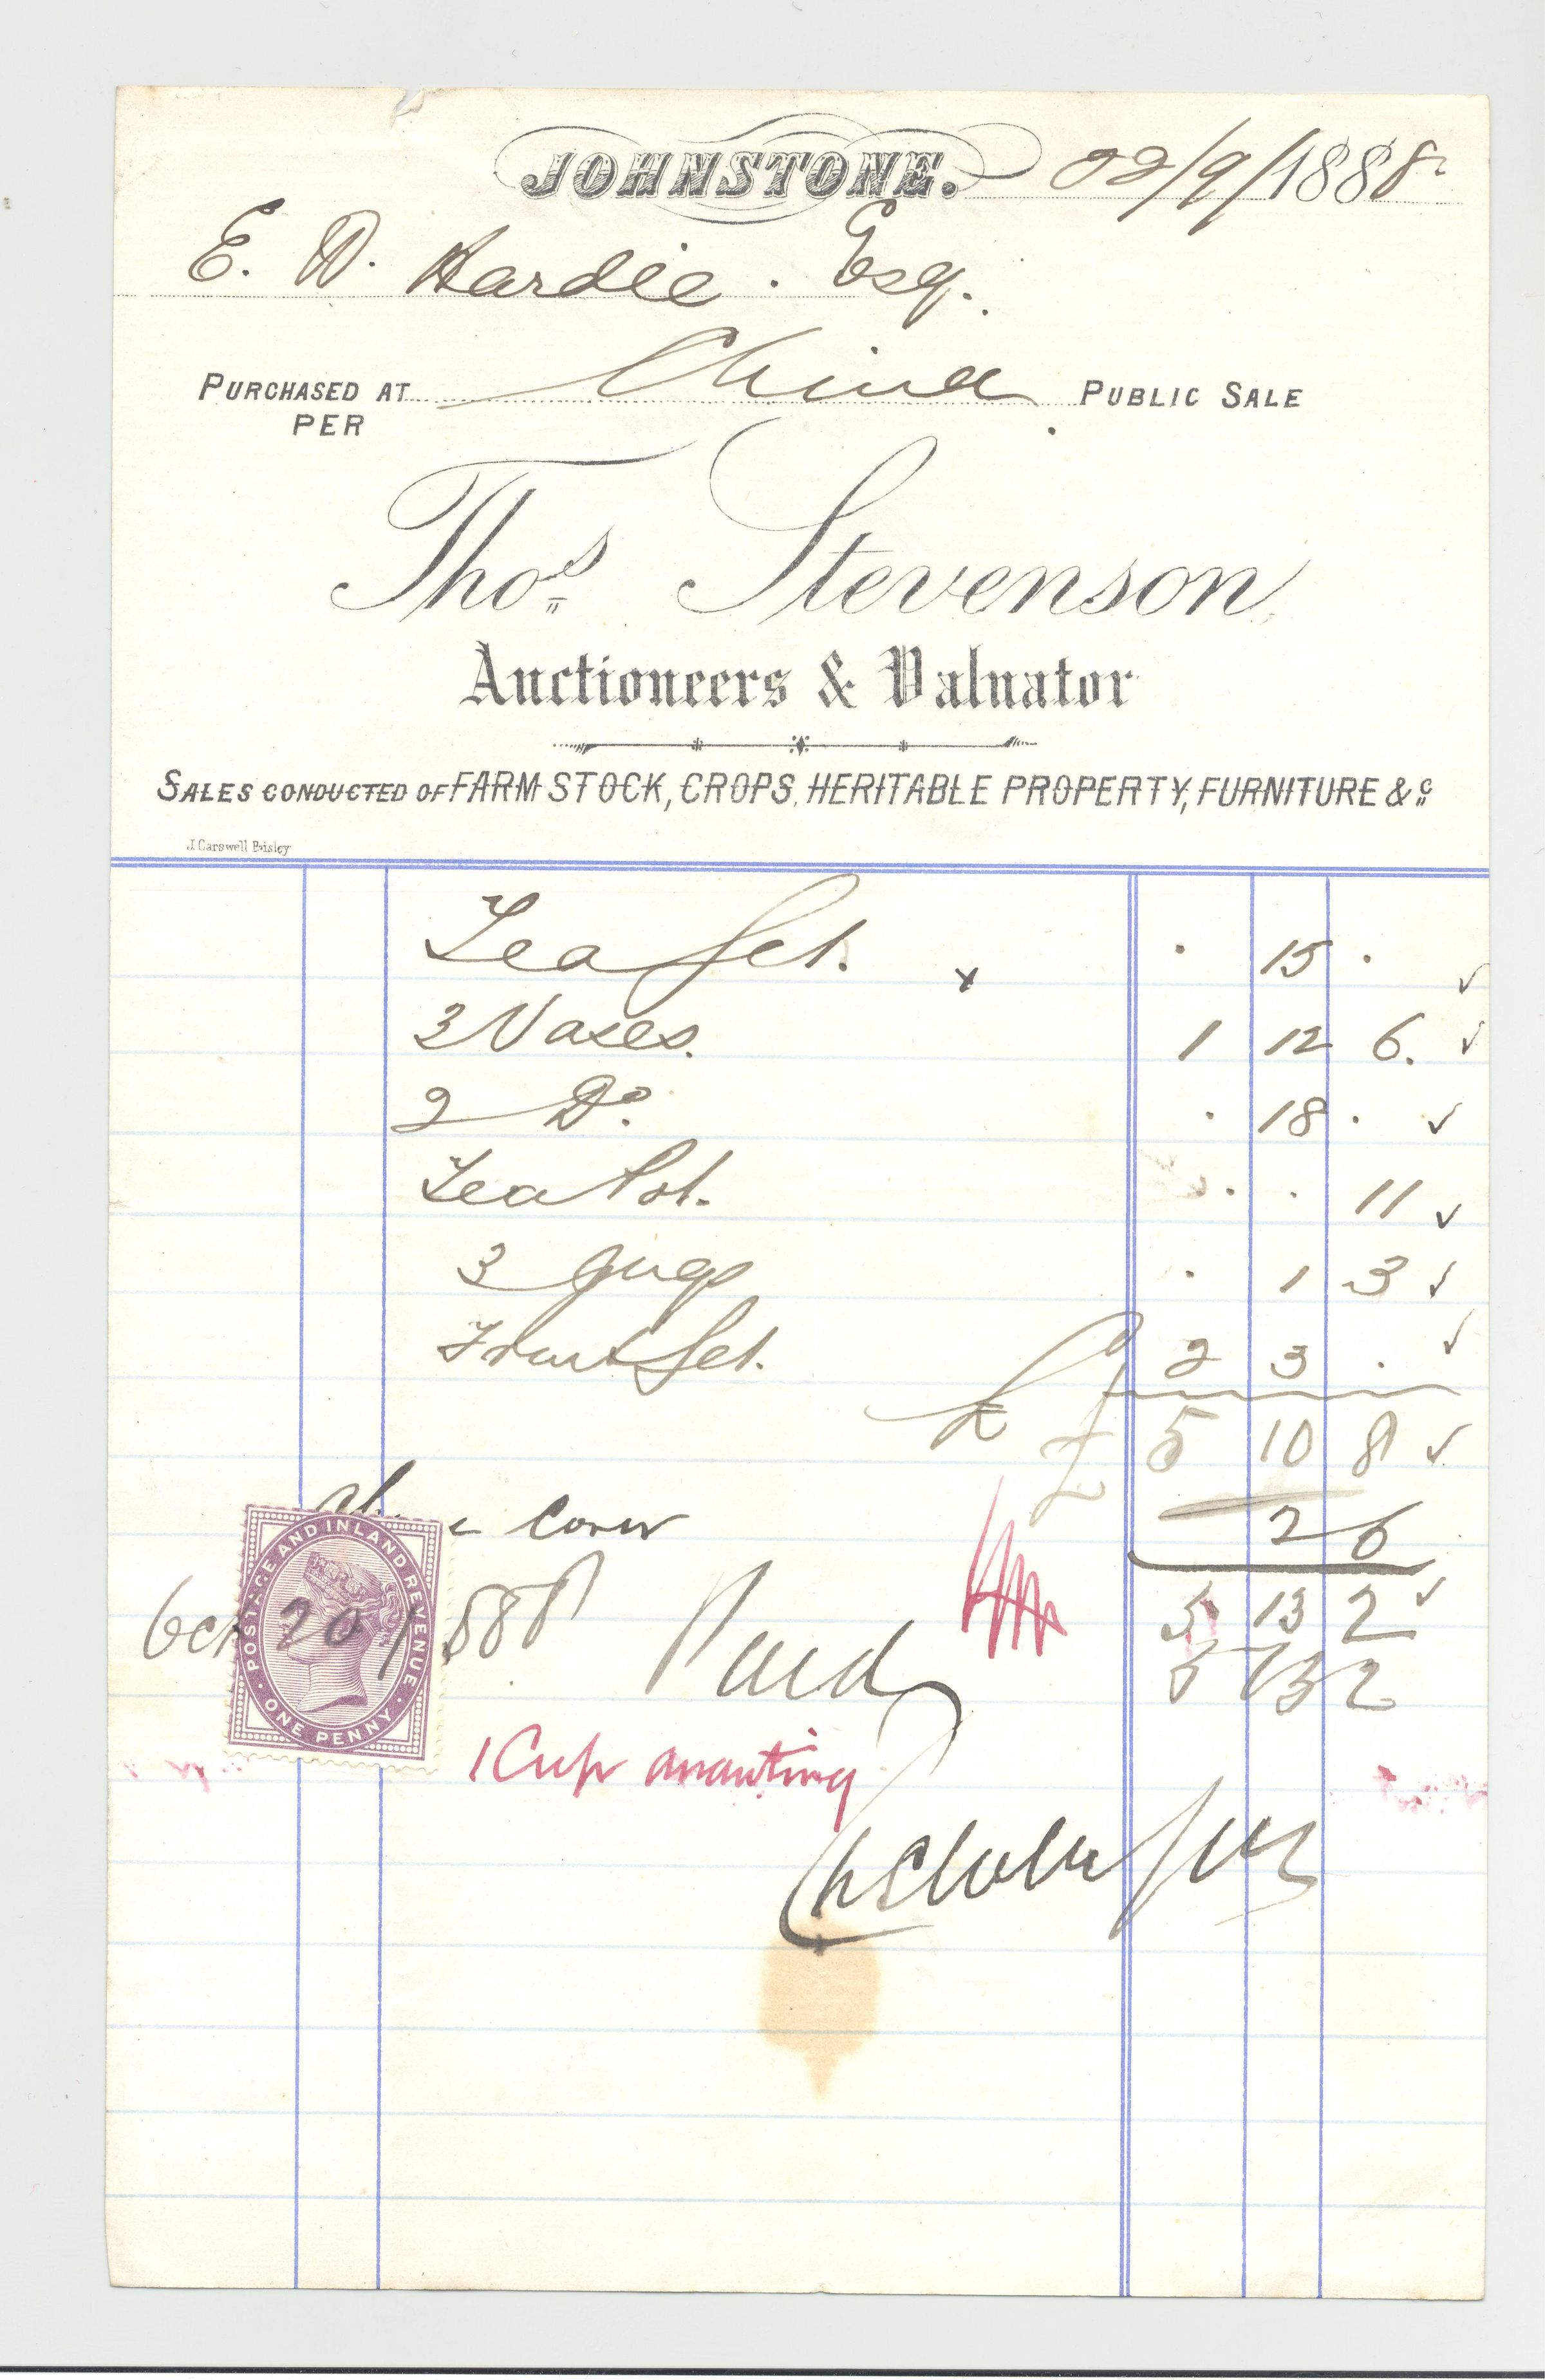 JOHNSTONE. 22/9/1888.
E. D. Hardie. Esq.
PURCHASED AT China PUBLIC SALE
PER
Thos Stevenson,
Auctioneers & Valuator
SALES CONDUCTED OF FARM STOCK, CROPS, HERITABLE PROPERTY, FURNITURE &c
J. Carswell Paisley
Tea Set. x . 15 . ✓
3 Vases. 1 12 6. ✓
2 Do. . 18 . ✓
Tea Pot. . . 11 ✓
3 Jugs . 1 3 ✓
Fruit Set. 2 3 . ✓
£ 5 10 8 ✓
Cover 2 6
5 13 2 ✓
Oct 20 / 888 Paid 5 13 2
POSTAGE AND INLAND REVENUE
ONE PENNY
1 Cup